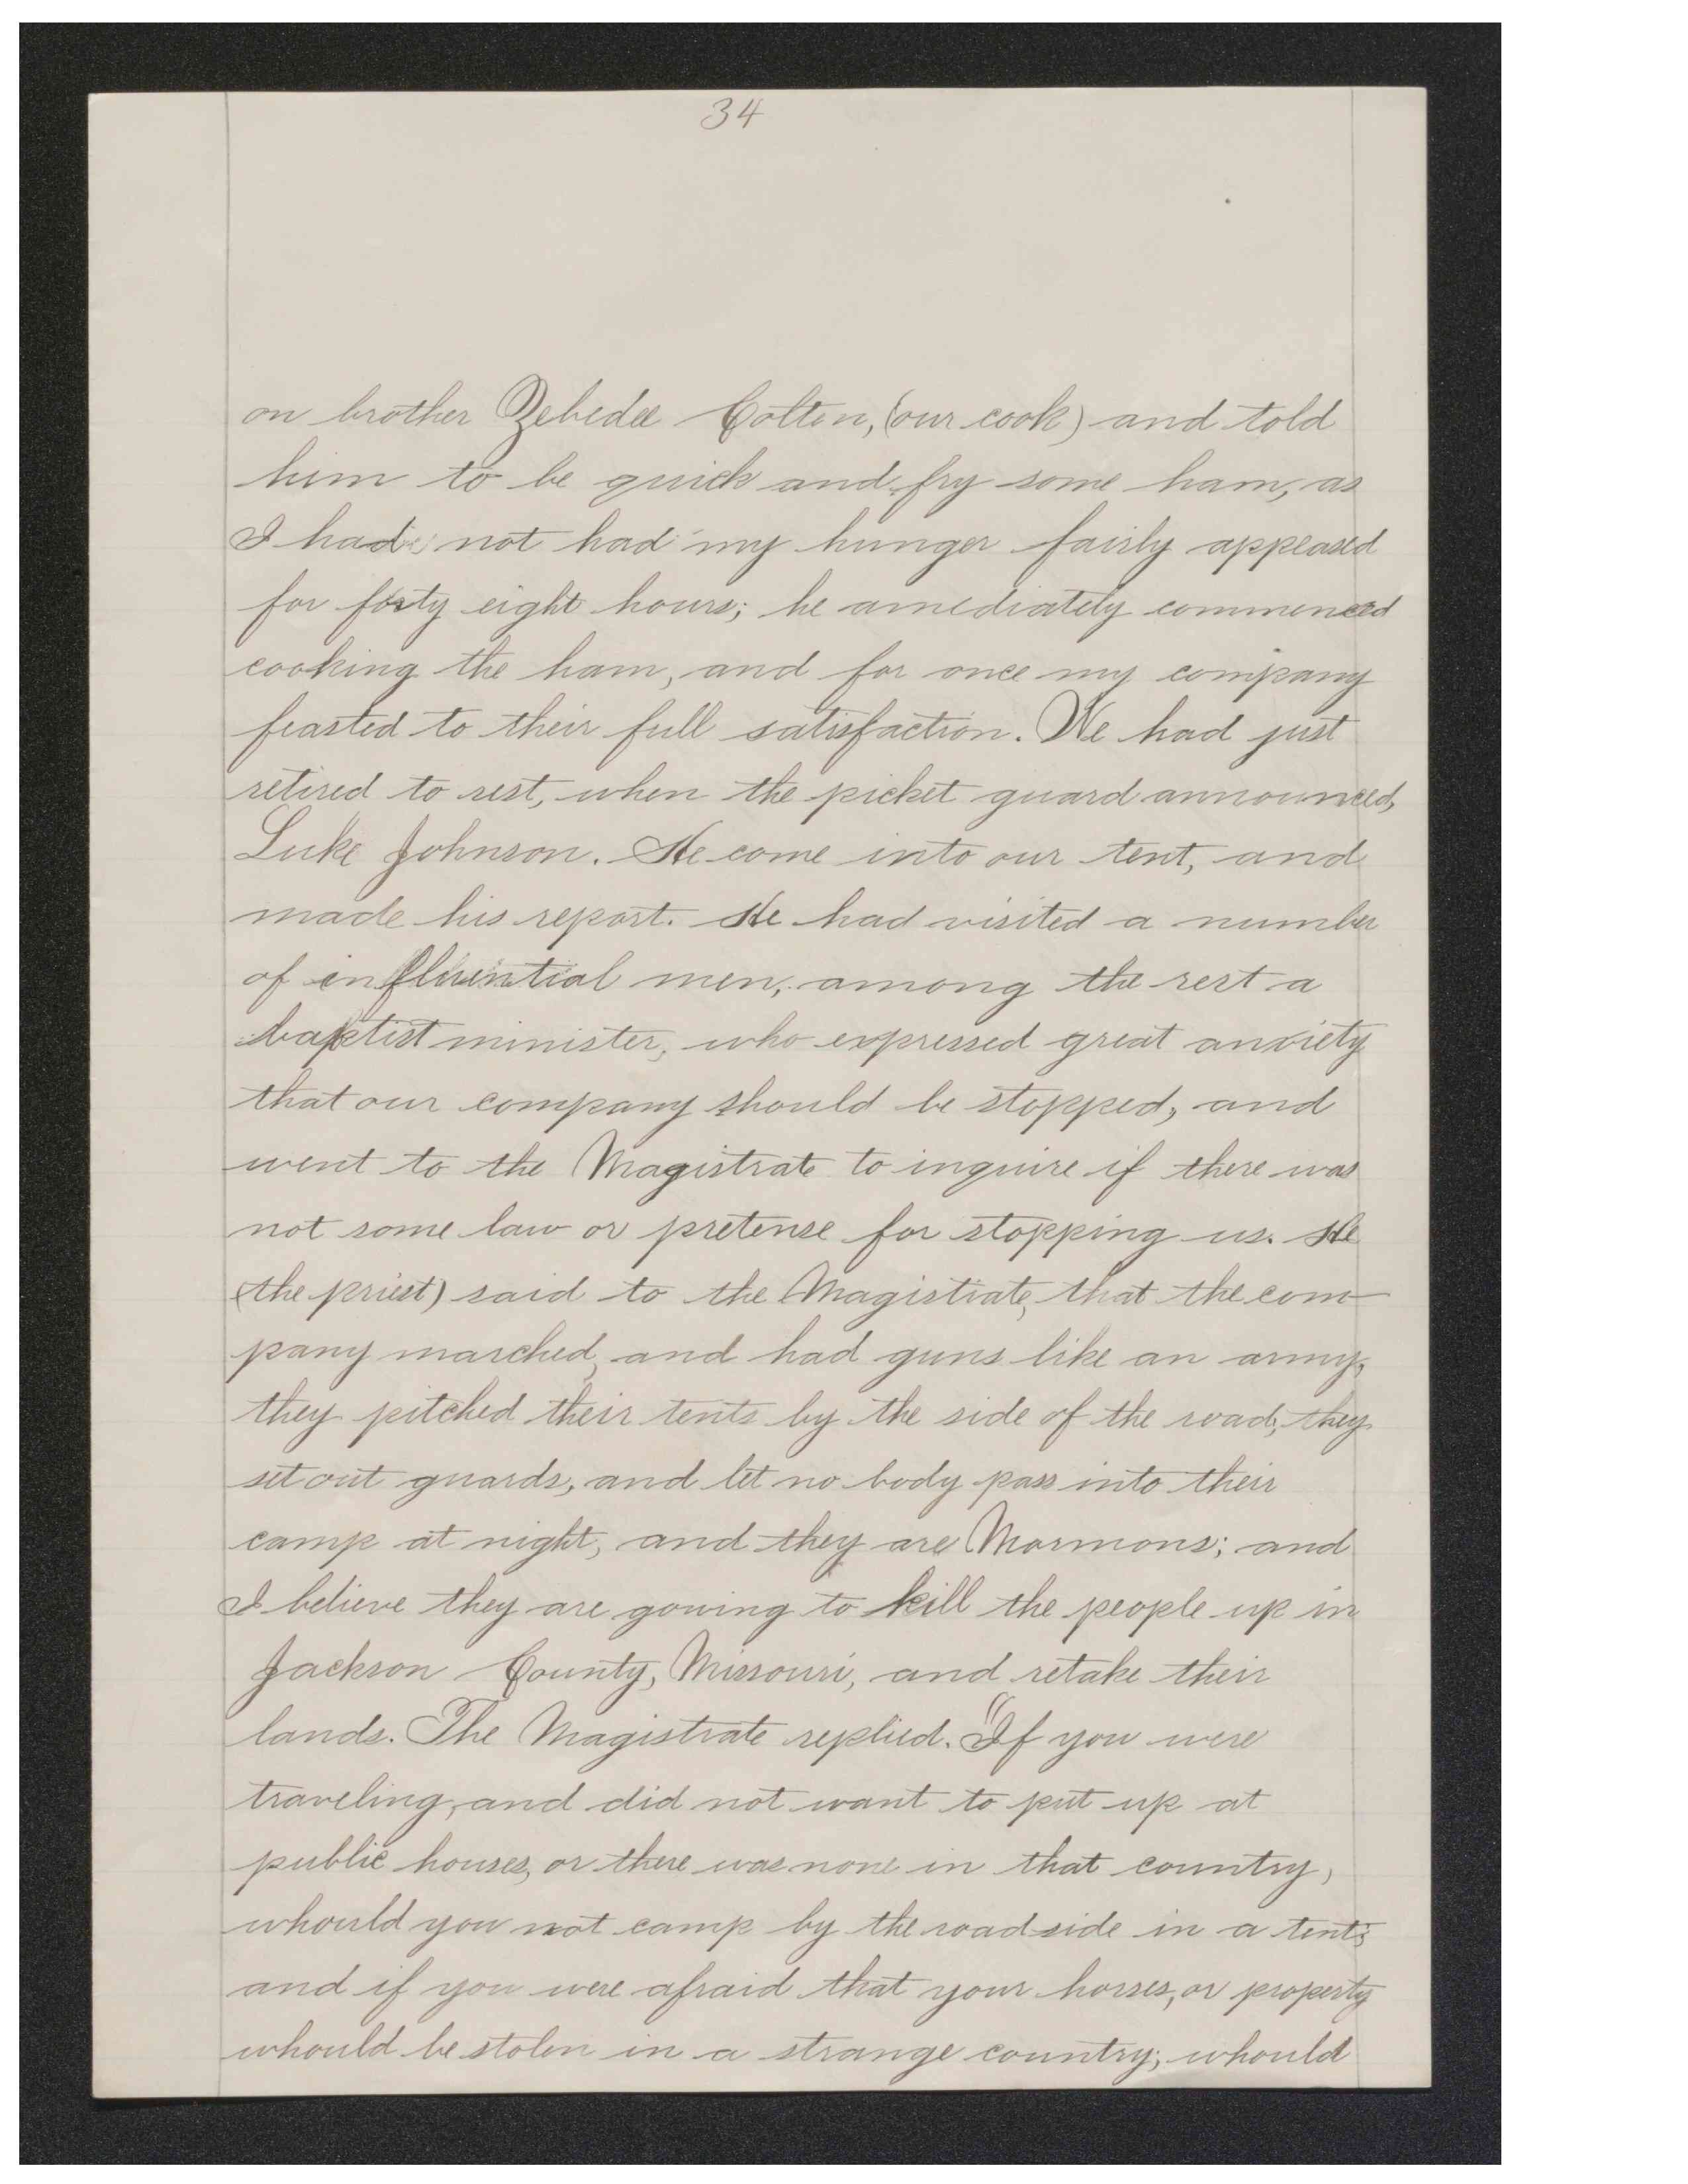 34
on brother Zebedee Colton, (our cook) and told
him to be quick and fry some ham, as
I had not had my hunger fairly appeased
for forty eight hours; he amediately commenced
cooking the ham, and for once my company
feasted to their full satisfaction. We had just
retired to rest, when the picket guard announced,
Luke Johnson. He come into our tent, and
made his report. He had visited a number
of influential men, among the rest a
baptist minister, who expressed great anxiety
that our company should be stopped, and
went to the Magistrate to inquire if there was
not some law or pretense for stopping us. He
(the priest) said to the Magistrate, that the com-
pany marched, and had guns like an army,
they pitched their tents by the side of the road, they
set out guards, and let no body pass into their
camp at night, and they are Mormons; and
I believe they are gowing to kill the people up in
Jackson County, Missouri, and retake their
lands. The Magistrate replied. "If you were
traveling, and did not want to put up at
public houses, or there was none in that country,
whould you not camp by the roadside in a tent;
and if you were afraid that your horses, or property
whould be stolen in a strange country; whould